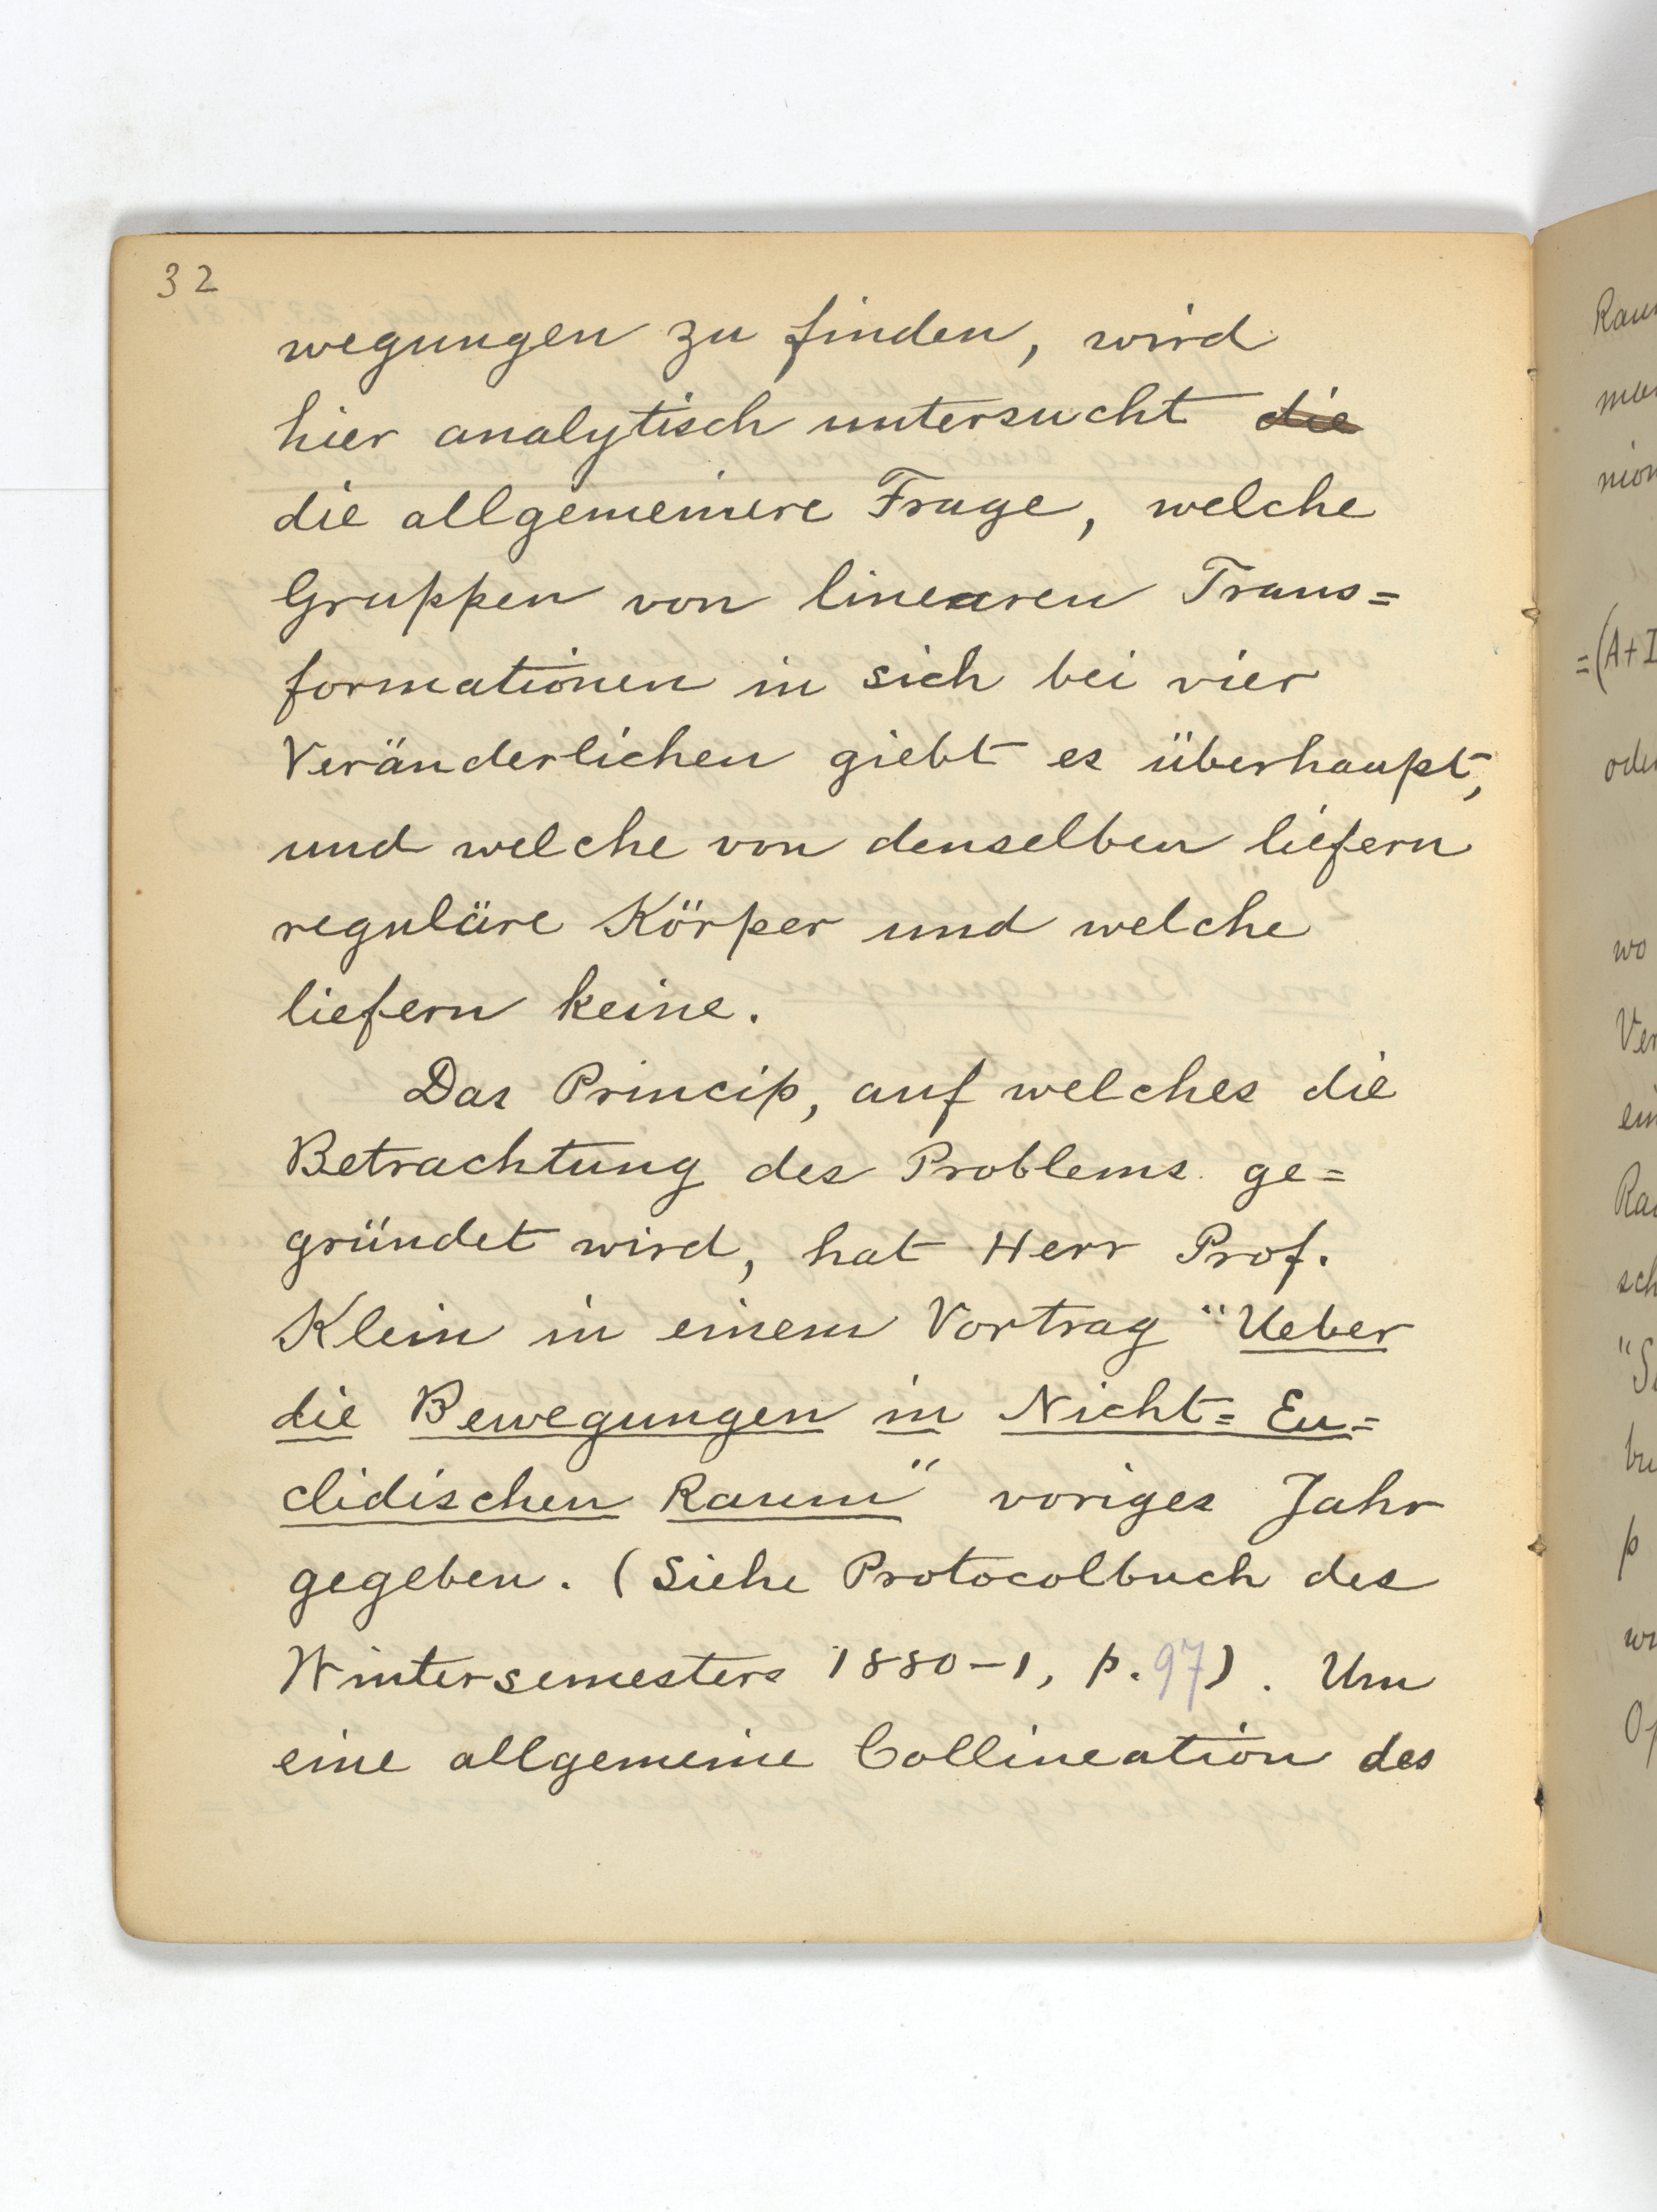 32
wegungen zu finden, wird
hier analytisch untersucht die
die allgemeinere Frage, welche
Gruppen von linearen Trans=
formationen in sich bei vier
Veränderlichen giebt es überhaupt,
und welche von denselben liefern
reguläre Körper und welche
liefern keine.
Das Princip, auf welches die
Betrachtung des Problems ge=
gründet wird, hat Herr Prof.
Klein in einem Vortrag "Ueber
die Bewegungen in Nicht=Eu=
clidischen Raum" voriges Jahr
gegeben. (Siehe Protocolbuch des
Wintersemesters 1880-1, p. 97). Um
eine allgemeine Collineation des
=(A+I
wo